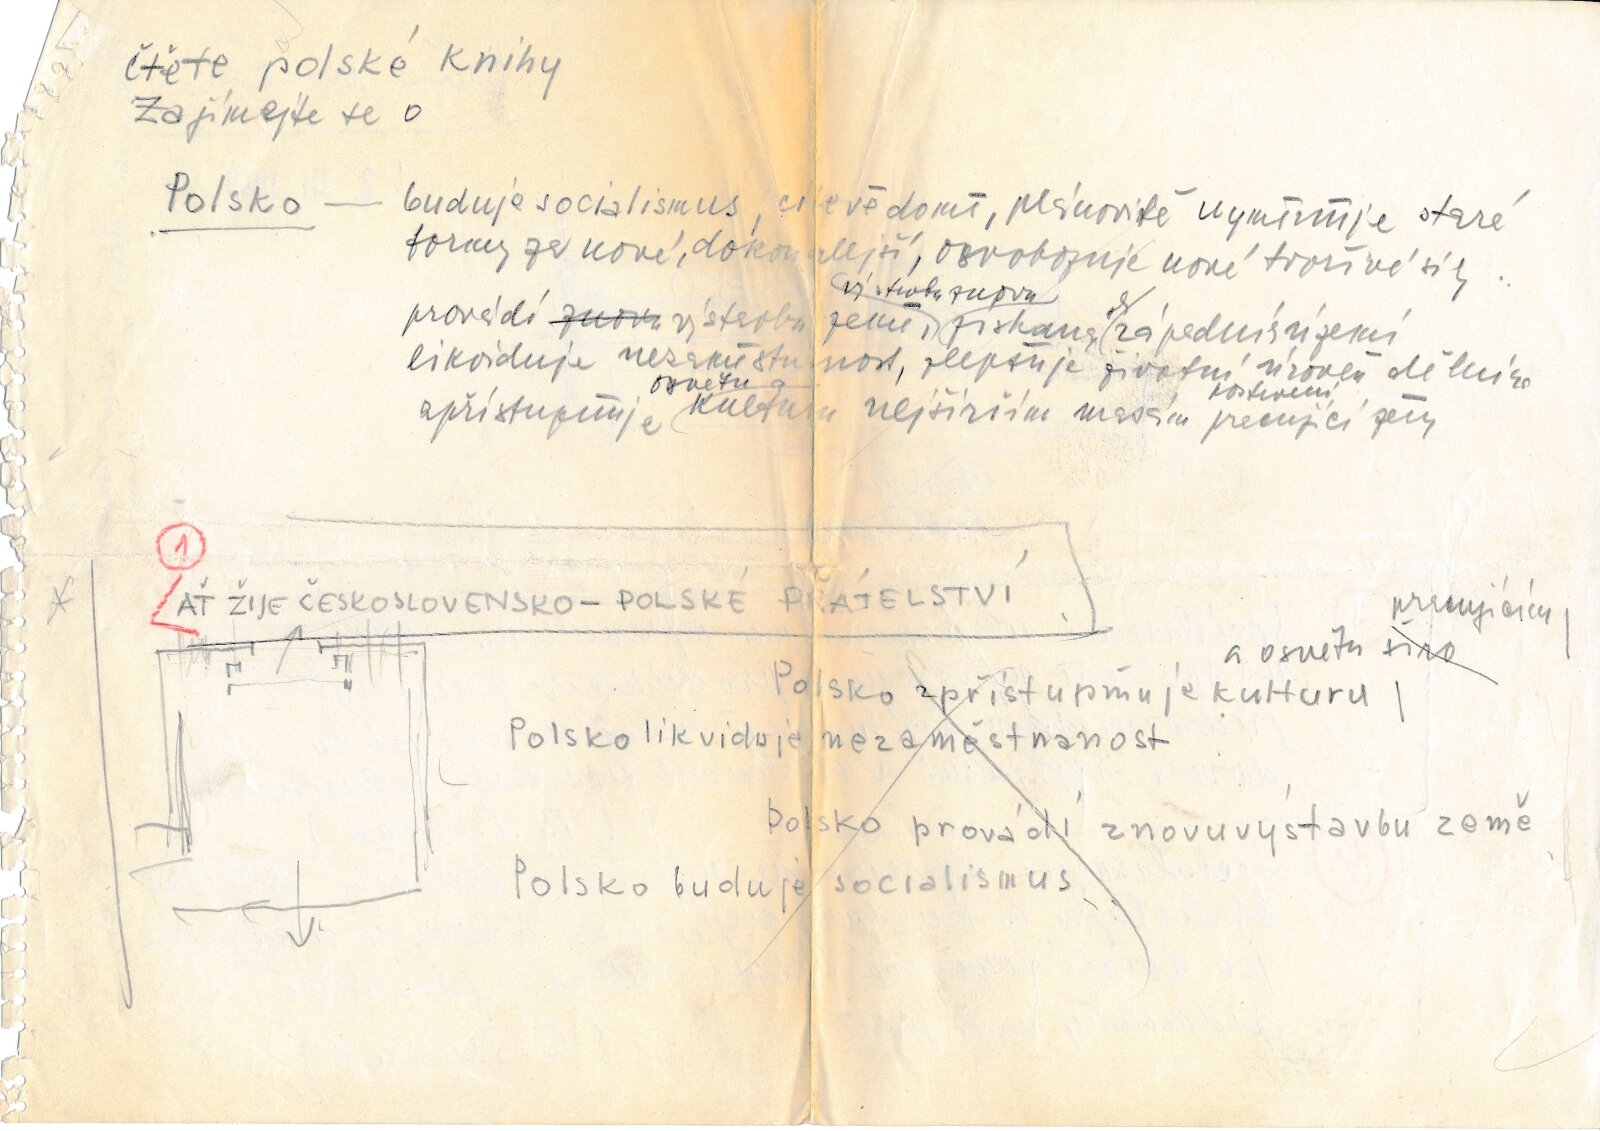 čtěte polské knihy
Zajímejte se o
Polsko — buduje socialismus, cílevědomě, plánovitě vyměňuje staré
formy za nové, dokonalejší, osvobozuje nové tvořivé síly.
výstavbu znovu
provádí znovu výstavbu země, získaná západní území
likviduje nezaměstnanost, zlepšuje životní úroveň dělníka
osvětu a
zpřístupňuje kulturu nejširším masám pracující
1
AŤ ŽIJE ČESKOSLOVENSKO – POLSKÉ PŘÁTELSTVÍ
pracujícím
a osvětu širo
Polsko zpřístupňuje kulturu
Polsko likviduje nezaměstnanost
Polsko provádí znovuvýstavbu země
Polsko buduje socialismus